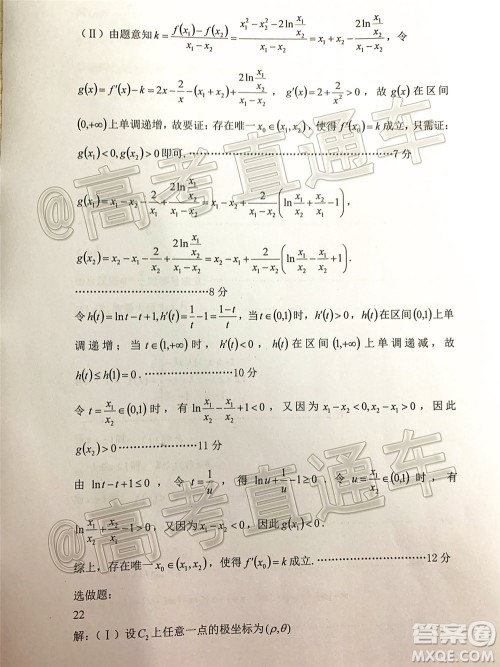 (Ⅱ)由题意知 k=\frac{f(x₁)-f(x₂)}{x₁-x₂}=\frac{x₁²-x₂²-2\ln\frac{x₁}{x₂}}{x₁-x₂}=x₁+x₂-\frac{2\ln\frac{x₁}{x₂}}{x₁-x₂},令
g(x)=f′(x)-k=2x-\frac{2}{x}-(x₁+x₂)+\frac{2\ln\frac{x₁}{x₂}}{x₁-x₂},g′(x)=2+\frac{2}{x²}>0,故g(x)在区间
(0,+∞)上单调递增,故要证:存在唯一x₀∈(x₁,x₂),使得f′(x₀)=k成立,只需证:
g(x₁)<0,g(x₂)>0即可.……………………………………7分
g(x₁)=x₁-x₂-\frac{2}{x₁}+\frac{2\ln\frac{x₁}{x₂}}{x₁-x₂}=x₁-x₂+\frac{2}{x₁-x₂}(\ln\frac{x₁}{x₂}+\frac{x₂}{x₁}-1),
g(x₂)=x₂-x₁-\frac{2}{x₂}+\frac{2\ln\frac{x₁}{x₂}}{x₁-x₂}=x₂-x₁+\frac{2}{x₁-x₂}(\ln\frac{x₁}{x₂}-\frac{x₁}{x₂}+1).
……………………8分
令h(t)=ln t-t+1,h′(t)=\frac{1}{t}-1=\frac{1-t}{t},当t∈(0,1)时,h′(t)>0,h(t)在区间(0,1)上单
调递增;当t∈(1,+∞)时,h′(t)<0,h(t)在区间(1,+∞)上单调递减,故
h(t)≤h(1)=0.……………………10分
令t=\frac{x₁}{x₂}∈(0,1)时,有\ln\frac{x₁}{x₂}-\frac{x₁}{x₂}+1<0,又因为x₁-x₂<0,x₂-x₁>0,因此
g(x₂)>0……………………11分
由ln t-t+1≤0,令t=\frac{1}{u},得ln u+\frac{1}{u}-1≥0,令u=\frac{x₁}{x₂}∈(0,1)时,有
\ln\frac{x₁}{x₂}+\frac{x₂}{x₁}-1>0,又因为x₁-x₂<0,因此g(x₁)<0.
综上,存在唯一x₀∈(x₁,x₂),使得f′(x₀)=k成立.……………………12分
选做题:
22
解:(Ⅰ)设C₂上任意一点的极坐标为(ρ,θ)
@高考直通车
@高考直通车
答案圈
MXQE.COM